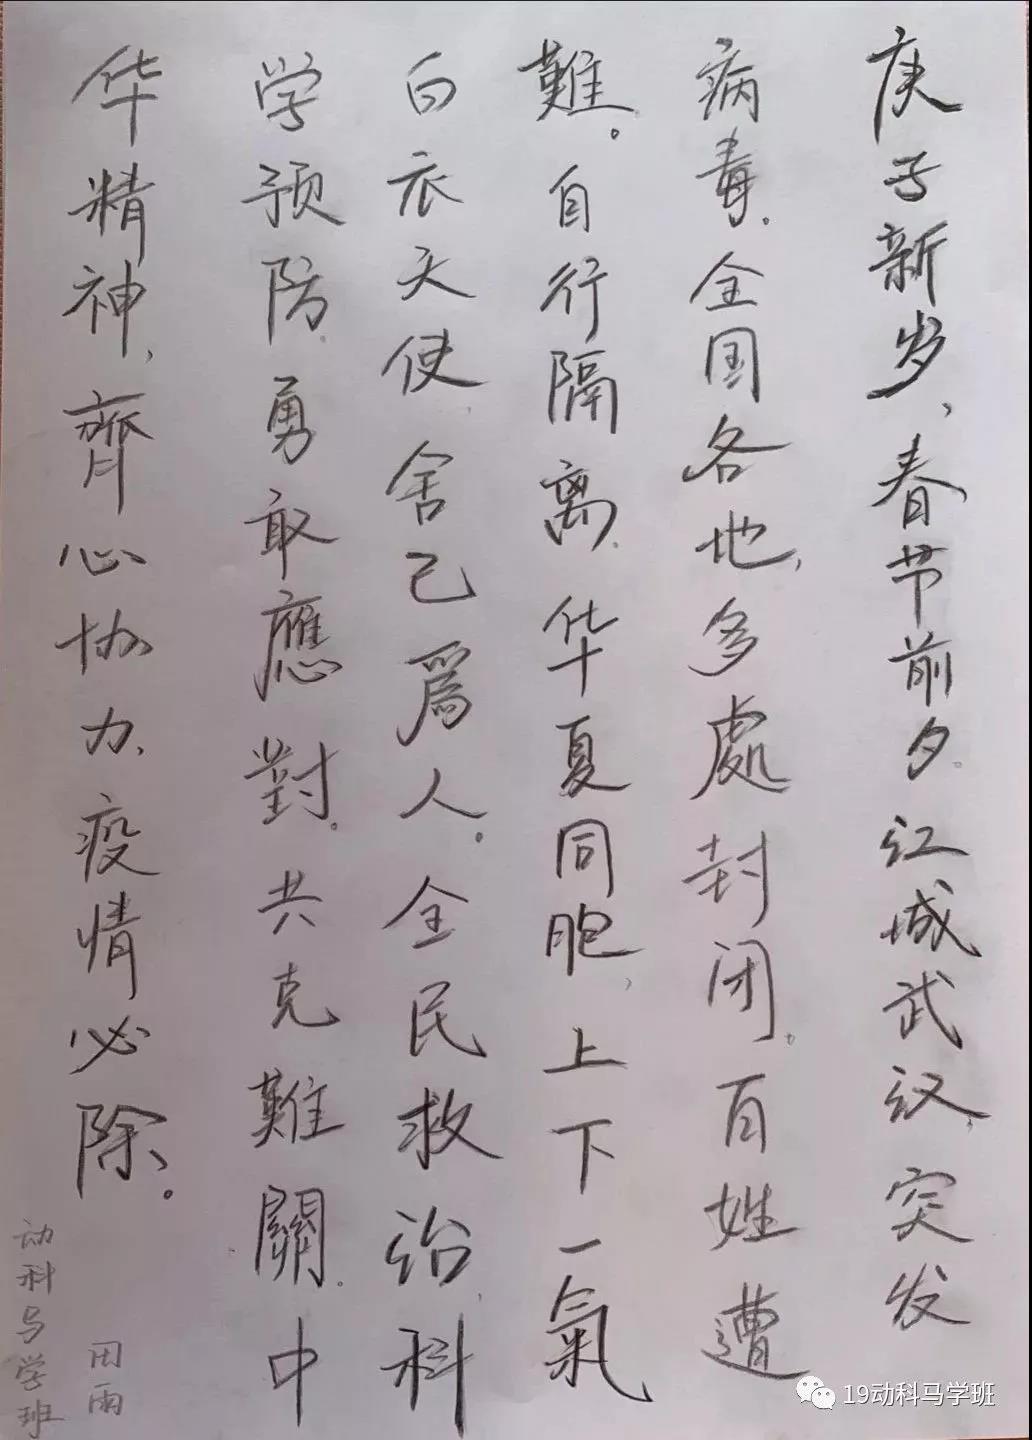 庚子新岁、春节前夕.江城武汉,突发
病毒.全国各地,多處封闭.百姓遭
難。自行隔离.华夏同胞,上下一氣
白衣天使,舍己爲人。全民救治,科
学预防.勇敢應對.共克難關.中
华精神,齊心协力、疫情必除。
动科马学班
田雨
19动科马学班